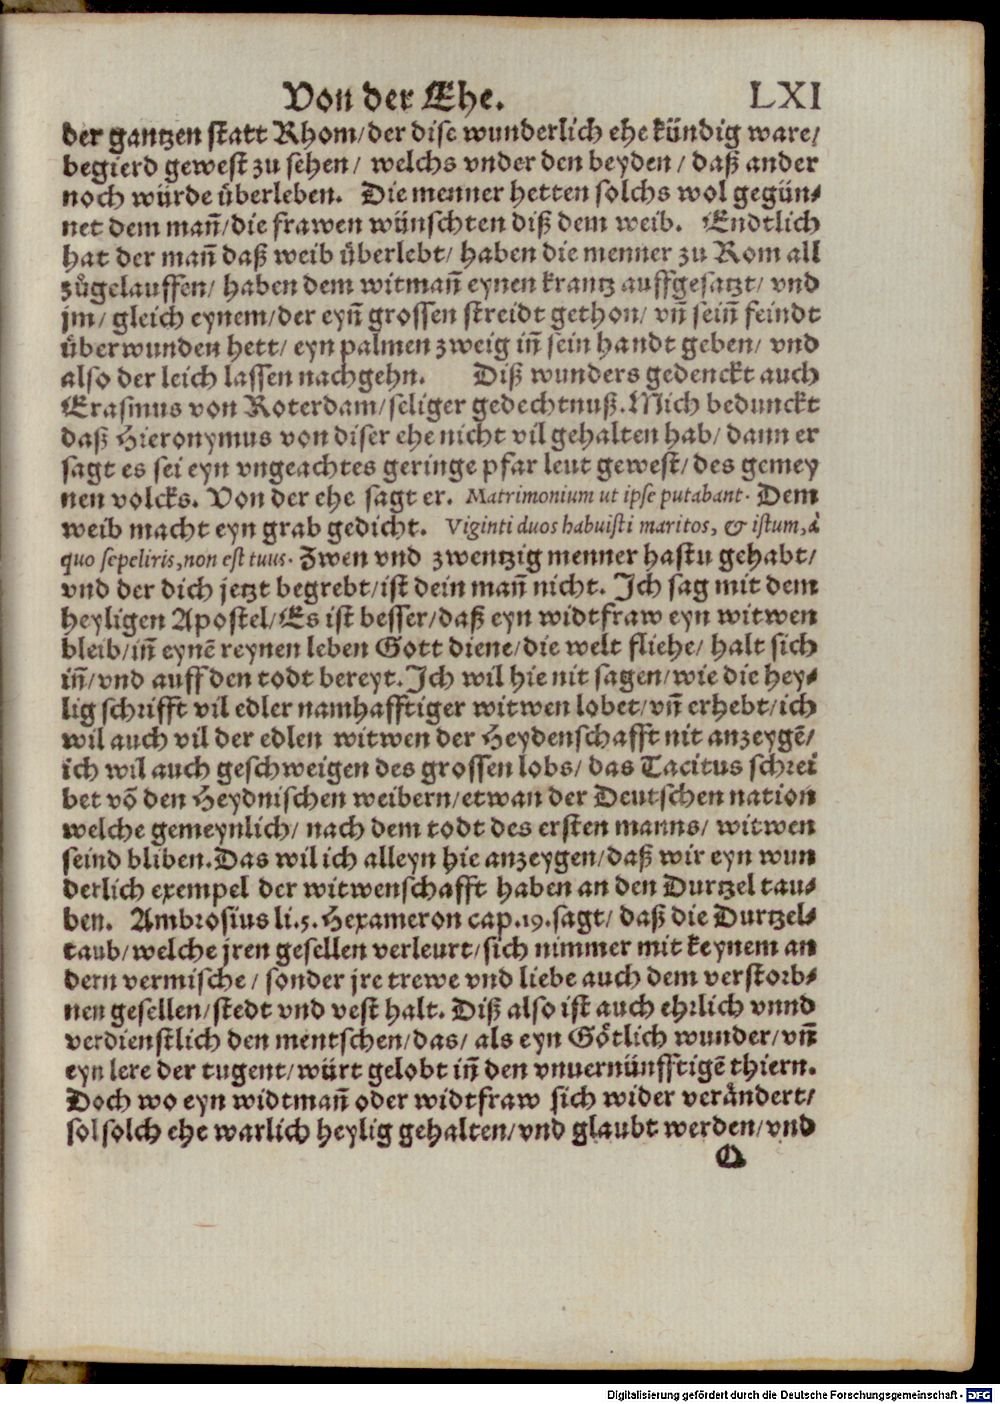 Von der Ehe. LXI
der gantzen statt Rhom/der dise wunderlich ehe kündig ware/
begierd gewest zu sehen/ welchs vnder den beyden/ daß ander
noch würde überleben. Die menner hetten solchs wol gegün⸗
net dem mañ/die frawen wünschten diß dem weib. Endtlich
hat der mañ daß weib überlebt/ haben die menner zu Rom all
zůgelauffen/ haben dem witmañ eynen krantz auffgesatzt/ vnd
jm/ gleich eynem/der eyñ grossen streidt gethon/ vñ seiñ feindt
überwunden hett/ eyn palmen zweig iñ sein handt geben/ vnd
also der leich lassen nachgehn. Diß wunders gedenckt auch
Erasmus von Roterdam/seliger gedechtnuß. Mich bedunckt
daß Hieronymus von diser ehe nicht vil gehalten hab/ dann er
sagt es sei eyn vngeachtes geringe pfar leut gewest/ des gemey
nen volcks. Von der ehe sagt er. Matrimonium ut ipse putabant. Dem
weib macht eyn grab gedicht. Viginti duos habuisti maritos, & istum, à
quo sepeliris, non est tuus. Zwen vnd zwentzig menner hastu gehabt/
vnd der dich jetzt begrebt/ist dein mañ nicht. Ich sag mit dem
heyligen Apostel/Es ist besser/daß eyn widtfraw eyn witwen
bleib/iñ eynẽ reynen leben Gott diene/die welt fliehe/ halt sich
iñ/vnd auff den todt bereyt. Ich wil hie nit sagen/wie die hey⸗
lig schrifft vil edler namhafftiger witwen lobet/vñ erhebt/ich
wil auch vil der edlen witwen der Heydenschafft nit anzeygẽ/
ich wil auch geschweigen des grossen lobs/ das Tacitus schrei
bet võ den Heydnischen weibern/etwan der Deutschen nation
welche gemeynlich/ nach dem todt des ersten manns/ witwen
seind bliben. Das wil ich alleyn hie anzeygen/daß wir eyn wun
derlich exempel der witwenschafft haben an den Durtzel tau⸗
ben. Ambrosius li.5. Hexameron cap.19. sagt/ daß die Durtzel⸗
taub/welche jren gesellen verleurt/sich nimmer mit keynem an
dern vermische/ sonder jre trewe vnd liebe auch dem verstorb⸗
nen gesellen/stedt vnd vest halt. Diß also ist auch ehrlich vnnd
verdienstlich den mentschen/das/ als eyn Götlich wunder/vñ
eyn lere der tugent/würt gelobt iñ den vnuernünfftigẽ thiern.
Doch wo eyn widtmañ oder widtfraw sich wider verändert/
sol solch ehe warlich heylig gehalten/vnd glaubt werden/vnd
Q
Digitalisierung gefördert durch die Deutsche Forschungsgemeinschaft - DFG